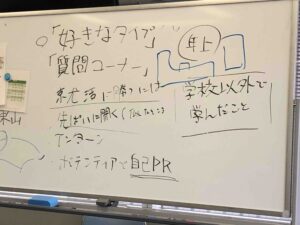 ○「好きなタイプ」
年上
「質問コーナー」
就活に勝つには
先ぱいに聞く
インターン
ボランティアで自己PR
学校以外で
学んだこと